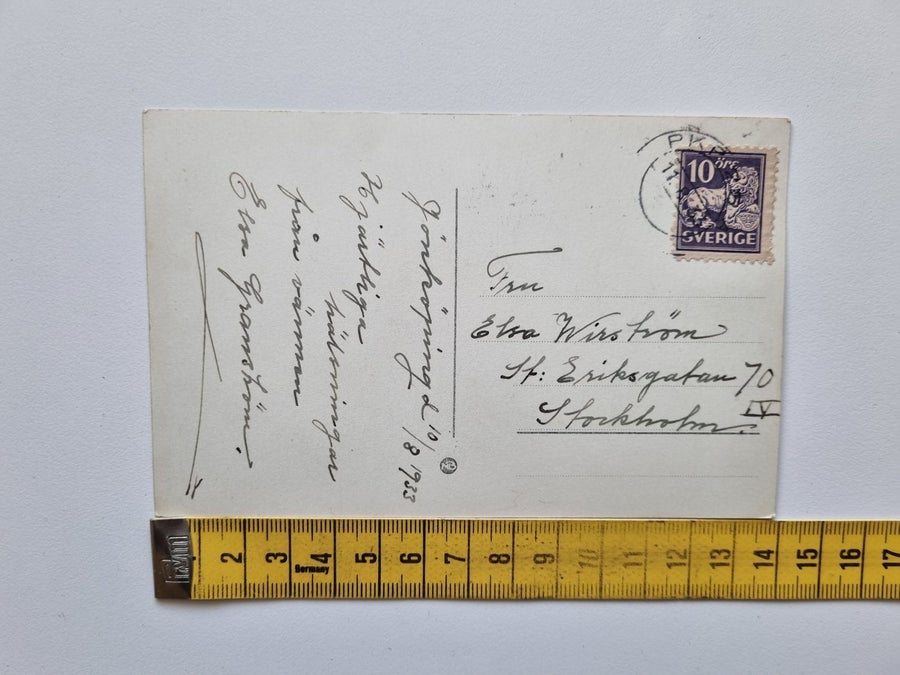 Jönköping d 10/8 1933
Hjärtliga
hälsningar
från vännen
Elsa Granström.
PK
10 ÖRE
SVERIGE
Fru
Elsa Wirström
St: Eriksgatan 70
IV
Stockholm.
2 3 4 5 6 7 8 9 10 11 12 13 14 15 16 17
Germany